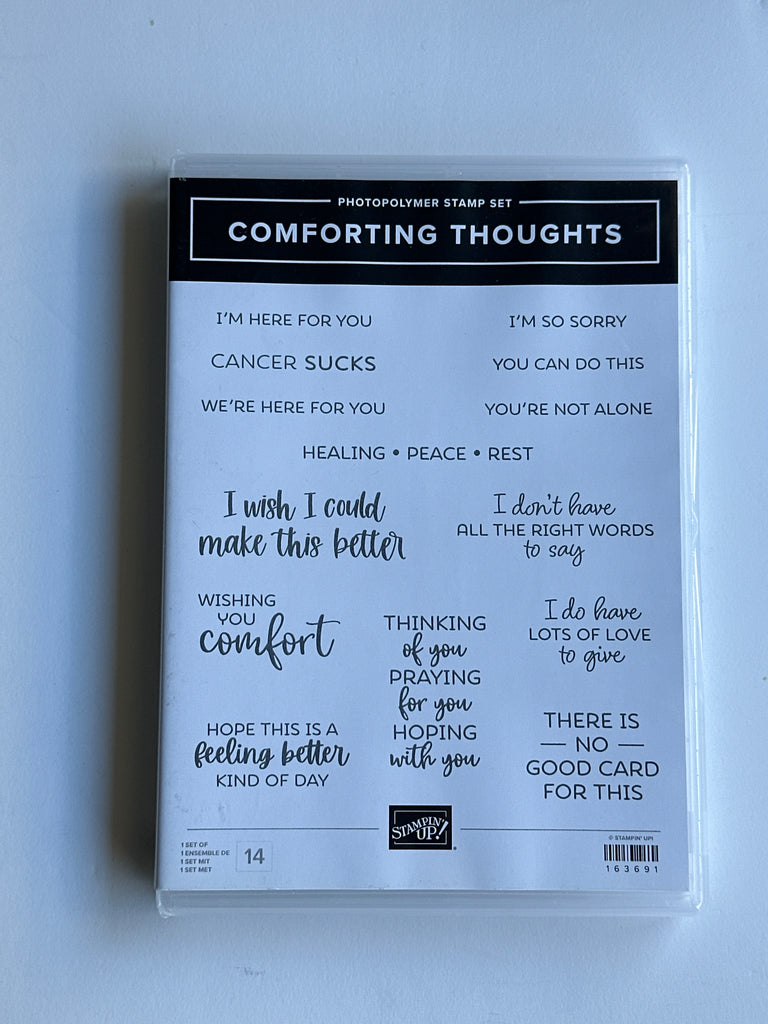 PHOTOPOLYMER STAMP SET
COMFORTING THOUGHTS
I'M HERE FOR YOU
I'M SO SORRY
CANCER SUCKS
YOU CAN DO THIS
WE'RE HERE FOR YOU
YOU'RE NOT ALONE
HEALING • PEACE • REST
I wish I could
make this better
I don't have
ALL THE RIGHT WORDS
to say
WISHING
YOU
comfort
THINKING
of you
PRAYING
for you
HOPING
with you
I do have
LOTS OF LOVE
to give
HOPE THIS IS A
feeling better
KIND OF DAY
THERE IS
— NO —
GOOD CARD
FOR THIS
STAMPIN'
UP!®
1 SET OF
1 ENSEMBLE DE
1 SET MIT
1 SET MET
14
© STAMPIN' UP!
163691